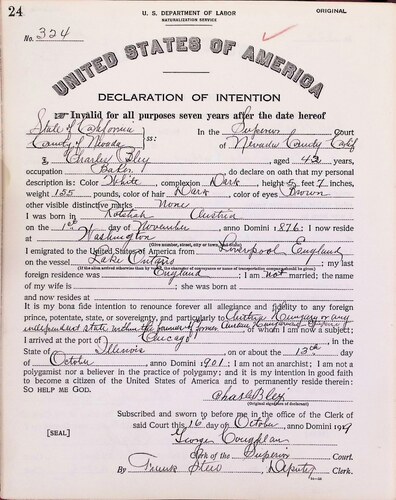 24
U. S. DEPARTMENT OF LABOR
NATURALIZATION SERVICE
ORIGINAL
No. 324
UNITED STATES OF AMERICA
DECLARATION OF INTENTION
Invalid for all purposes seven years after the date hereof
State of California
County of Nevada ss: In the Superior Court
of Nevada County Calif
I, Charley, aged 42 years,
occupation Baker, do declare on oath that my personal
description is: Color White, complexion Dark, height 5 feet 7 inches,
weight 155 pounds, color of hair Dark, color of eyes Brown
other visible distinctive marks None
I was born in Austria
on the day of November, anno Domini 1876; I now reside
at Washington
(Give number, street, city or town, and State.)
I emigrated to the United States of America from Liverpool England
on the vessel Lake Ontario; my last
(If the alien arrived otherwise than by vessel, the character of conveyance or name of transportation company should be given.)
foreign residence was England; I am not married; the name
of my wife is; she was born at
and now resides at
It is my bona fide intention to renounce forever all allegiance and fidelity to any foreign
prince, potentate, state, or sovereignty, and particularly to Austria Hungary or any
independent state within the former, of whom I am now a subject;
I arrived at the port of Chicago, in the
State of Illinois, on or about the 13th day
of October, anno Domini 1901; I am not an anarchist; I am not a
polygamist nor a believer in the practice of polygamy; and it is my intention in good faith
to become a citizen of the United States of America and to permanently reside therein:
SO HELP ME GOD.
(Original signature of declarant)
Subscribed and sworn to before me in the office of the Clerk of
said Court this 16 day of October, anno Domini 19
[SEAL]
George Coughlan
Clerk of the Superior Court.
By, Deputy Clerk.